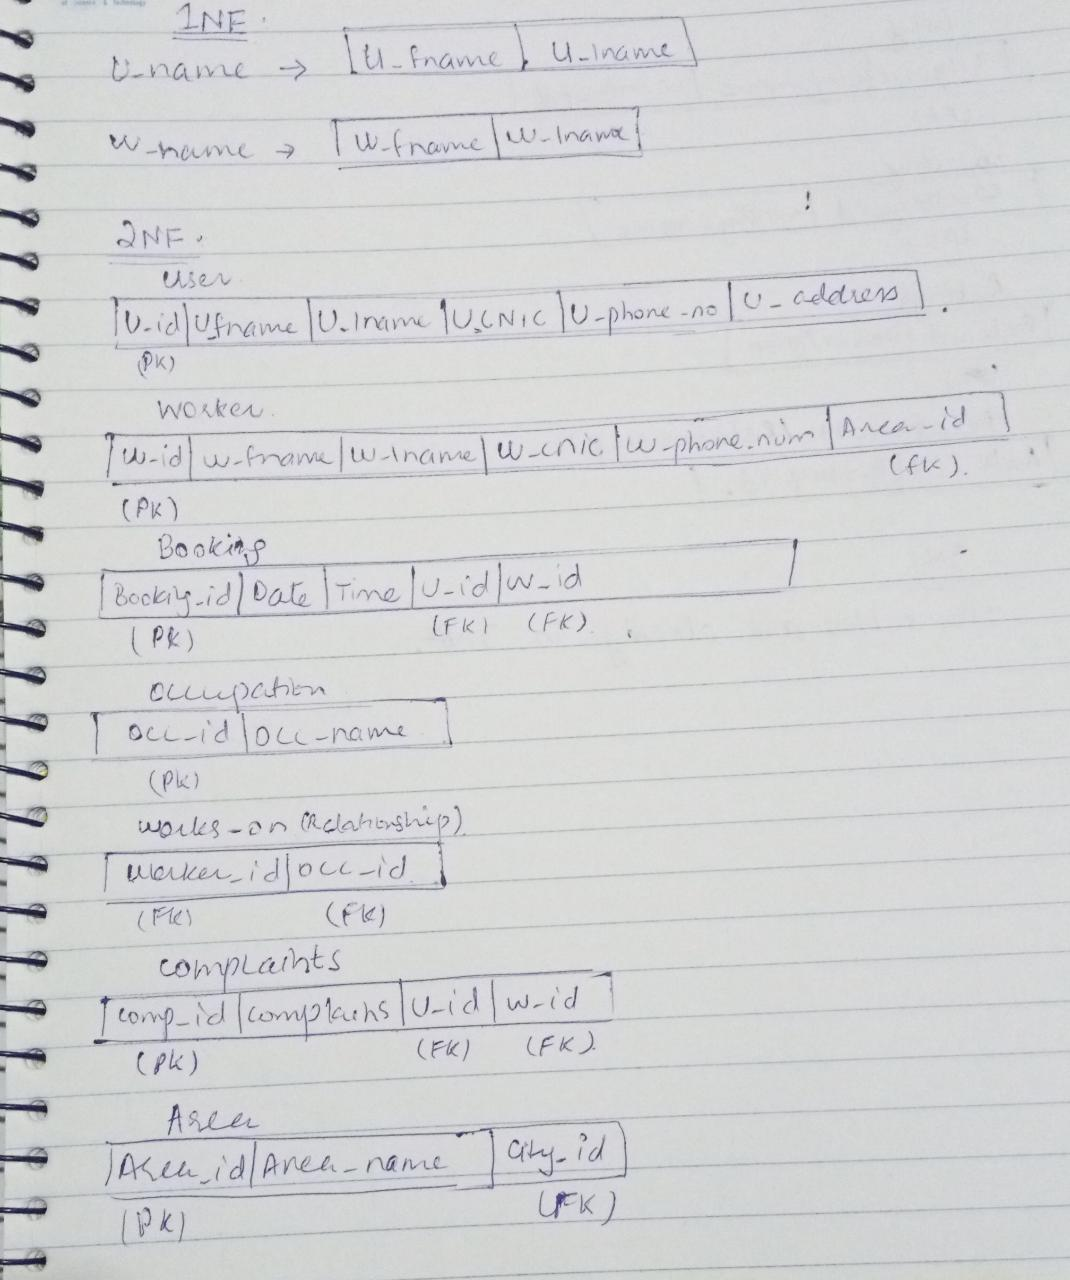 of Science & Technology
1NF.
U-name → U-fname U-lname
w-name → w-fname w-lname
2NF.
User.
U-id U-fname U-lname U-CNIC U-phone-no U-address
(PK)
Worker.
w-id w-fname w-lname w-cnic w-phone-num Area-id
(PK) (FK).
Booking
Bookig-id Date Time U-id w-id
(PK) (FK) (FK).
occupation
occ-id occ-name
(PK)
works-on (Relationship)
worker-id occ-id
(FK) (FK)
complaints
comp-id complains U-id w-id
(PK) (FK) (FK).
Area
Area-id Area-name City-id
(PK) (FK)